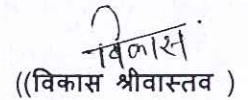 विकास
((विकास श्रीवास्तव )